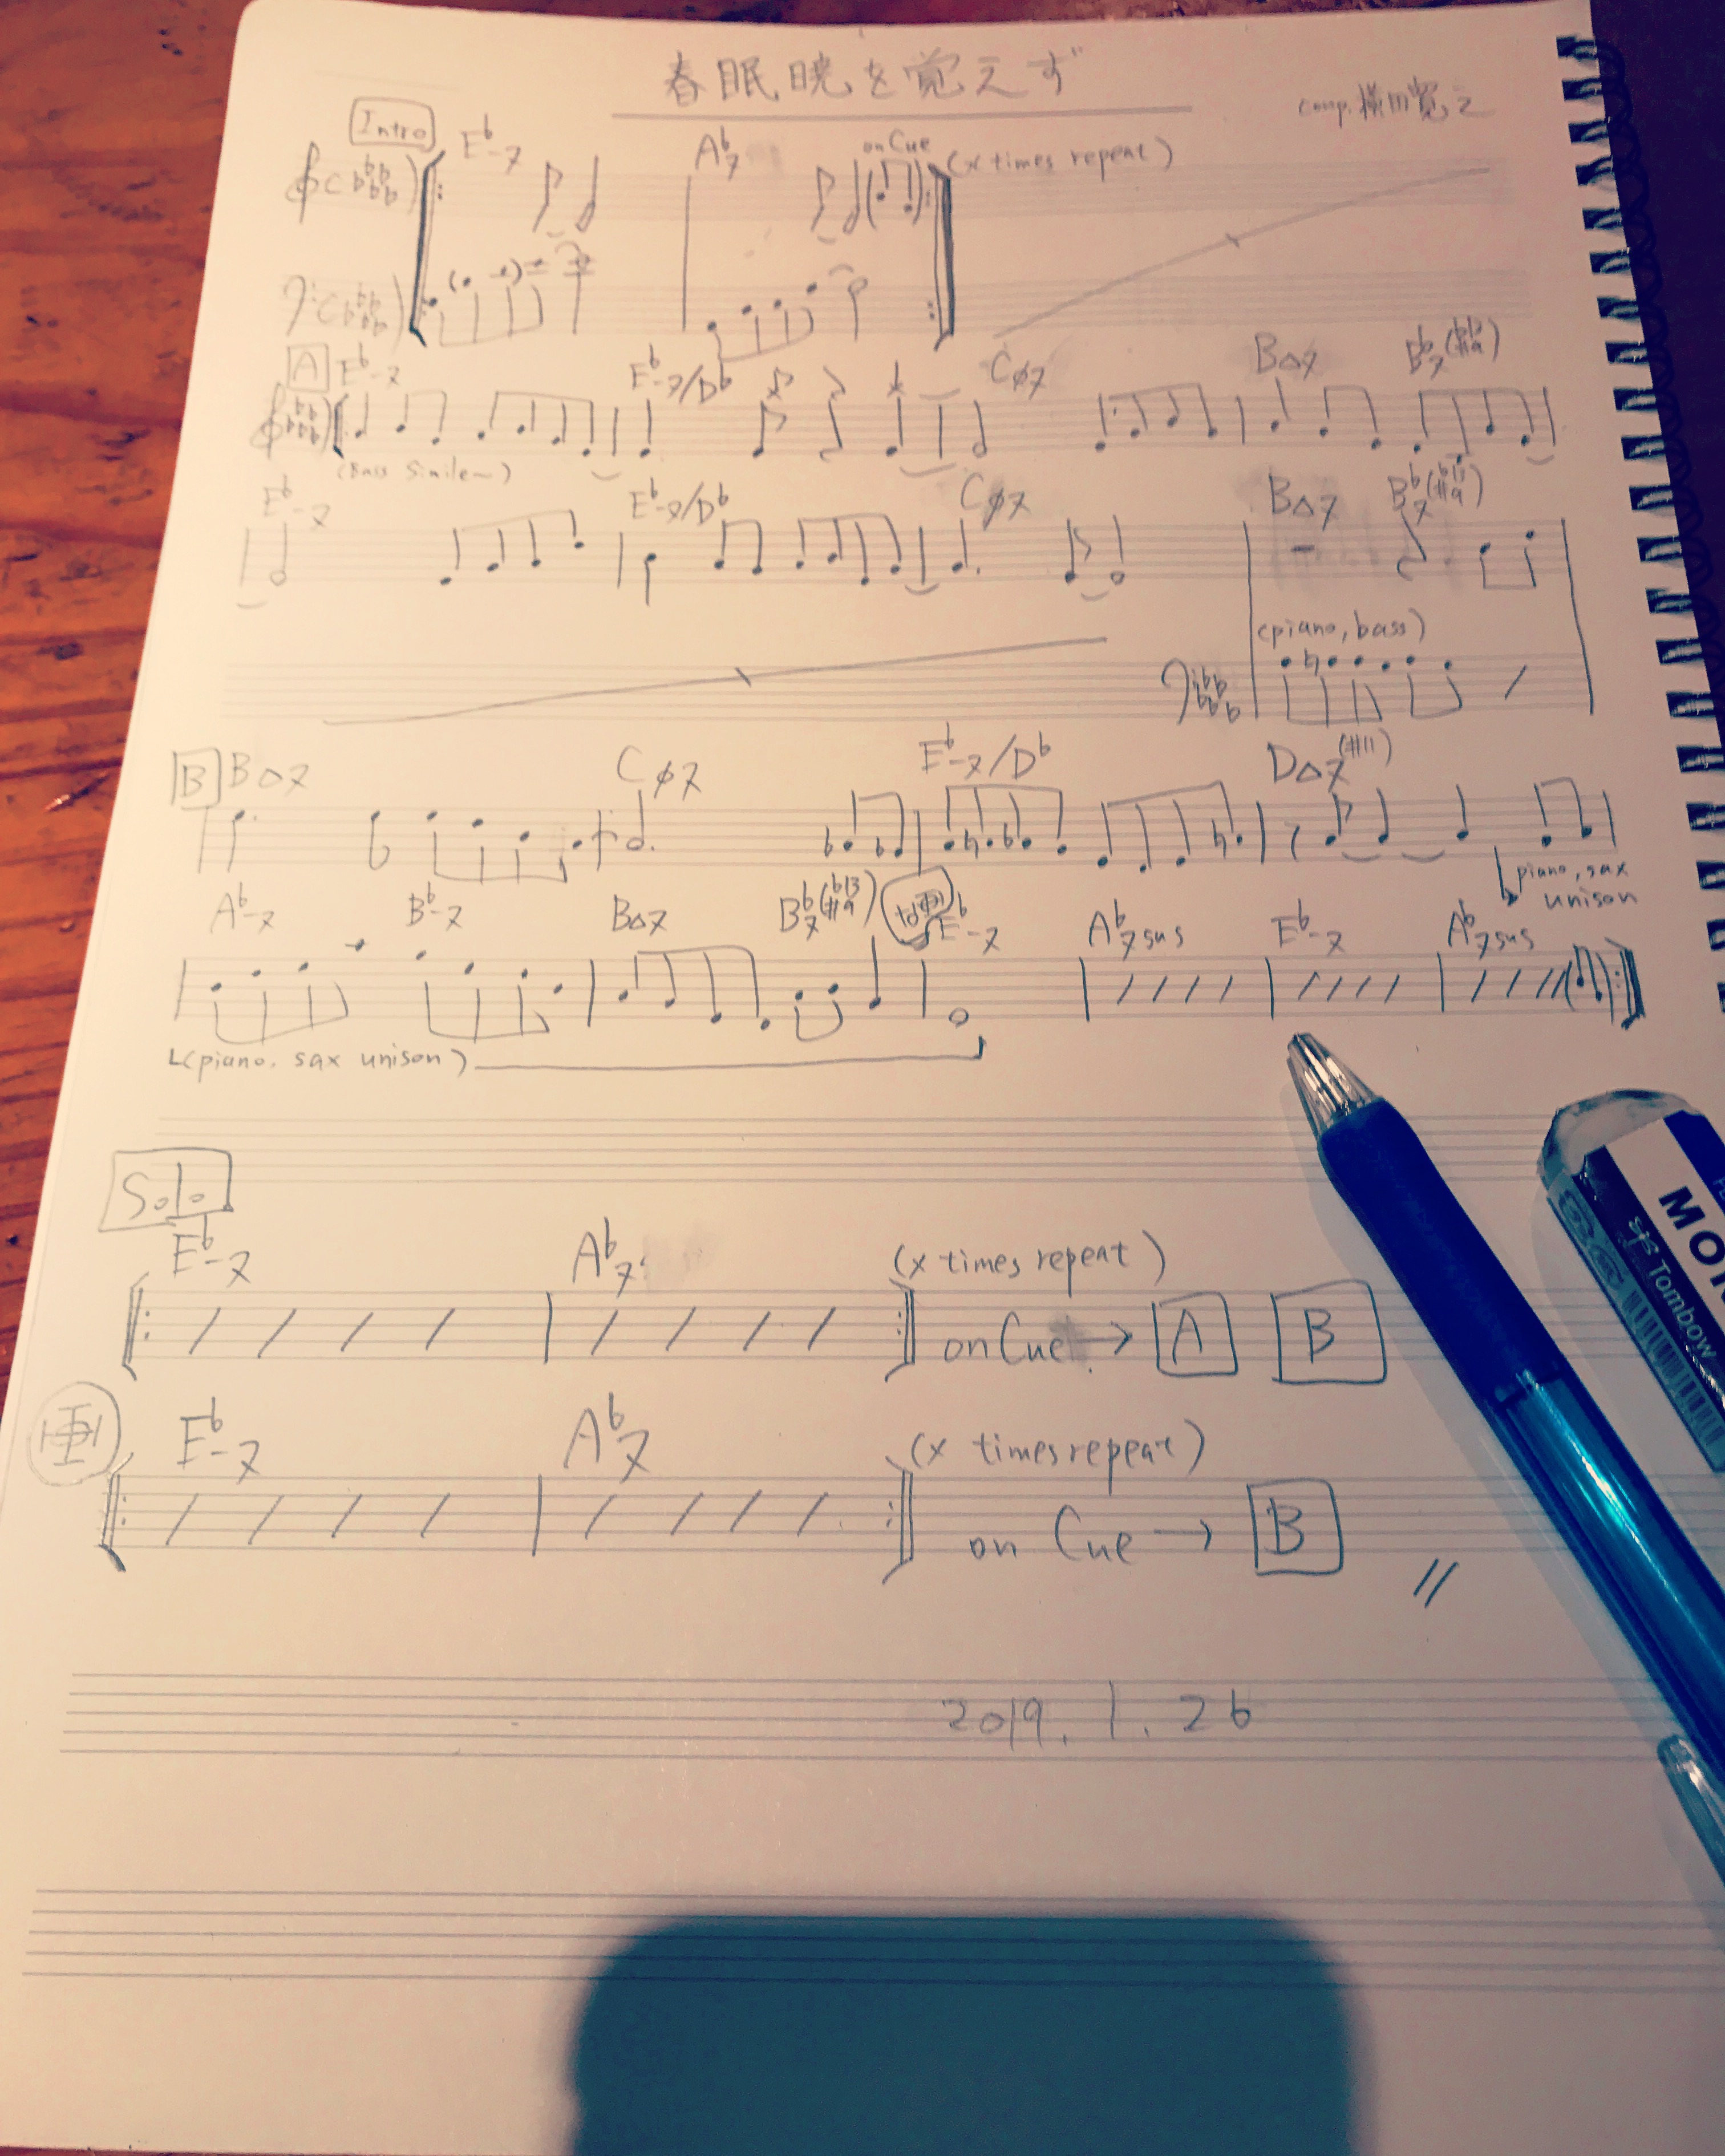 春眠暁を覚えず
comp. 横田寛之
Intro
E♭-7 A♭7 on Cue (x times repeat)
A E♭-7 E♭-7/D♭ Cø7 B△7 B♭7
(Bass Simile~)
E♭-7 E♭-7/D♭ Cø7 B△7 B♭7
(piano, bass)
B B△7 Cø7 E♭-7/D♭ D△7(#11)
piano, sax
unison
A♭-7 B♭-7 B△7 B♭7(♭13 #9) E♭-7 A♭7sus E♭-7 A♭7sus
(piano. sax unison)
Solo
E♭-7 A♭7 (x times repeat)
on Cue → A B
E♭-7 A♭7 (x times repeat)
on Cue → B
2019. 1. 26
MON
Tombow